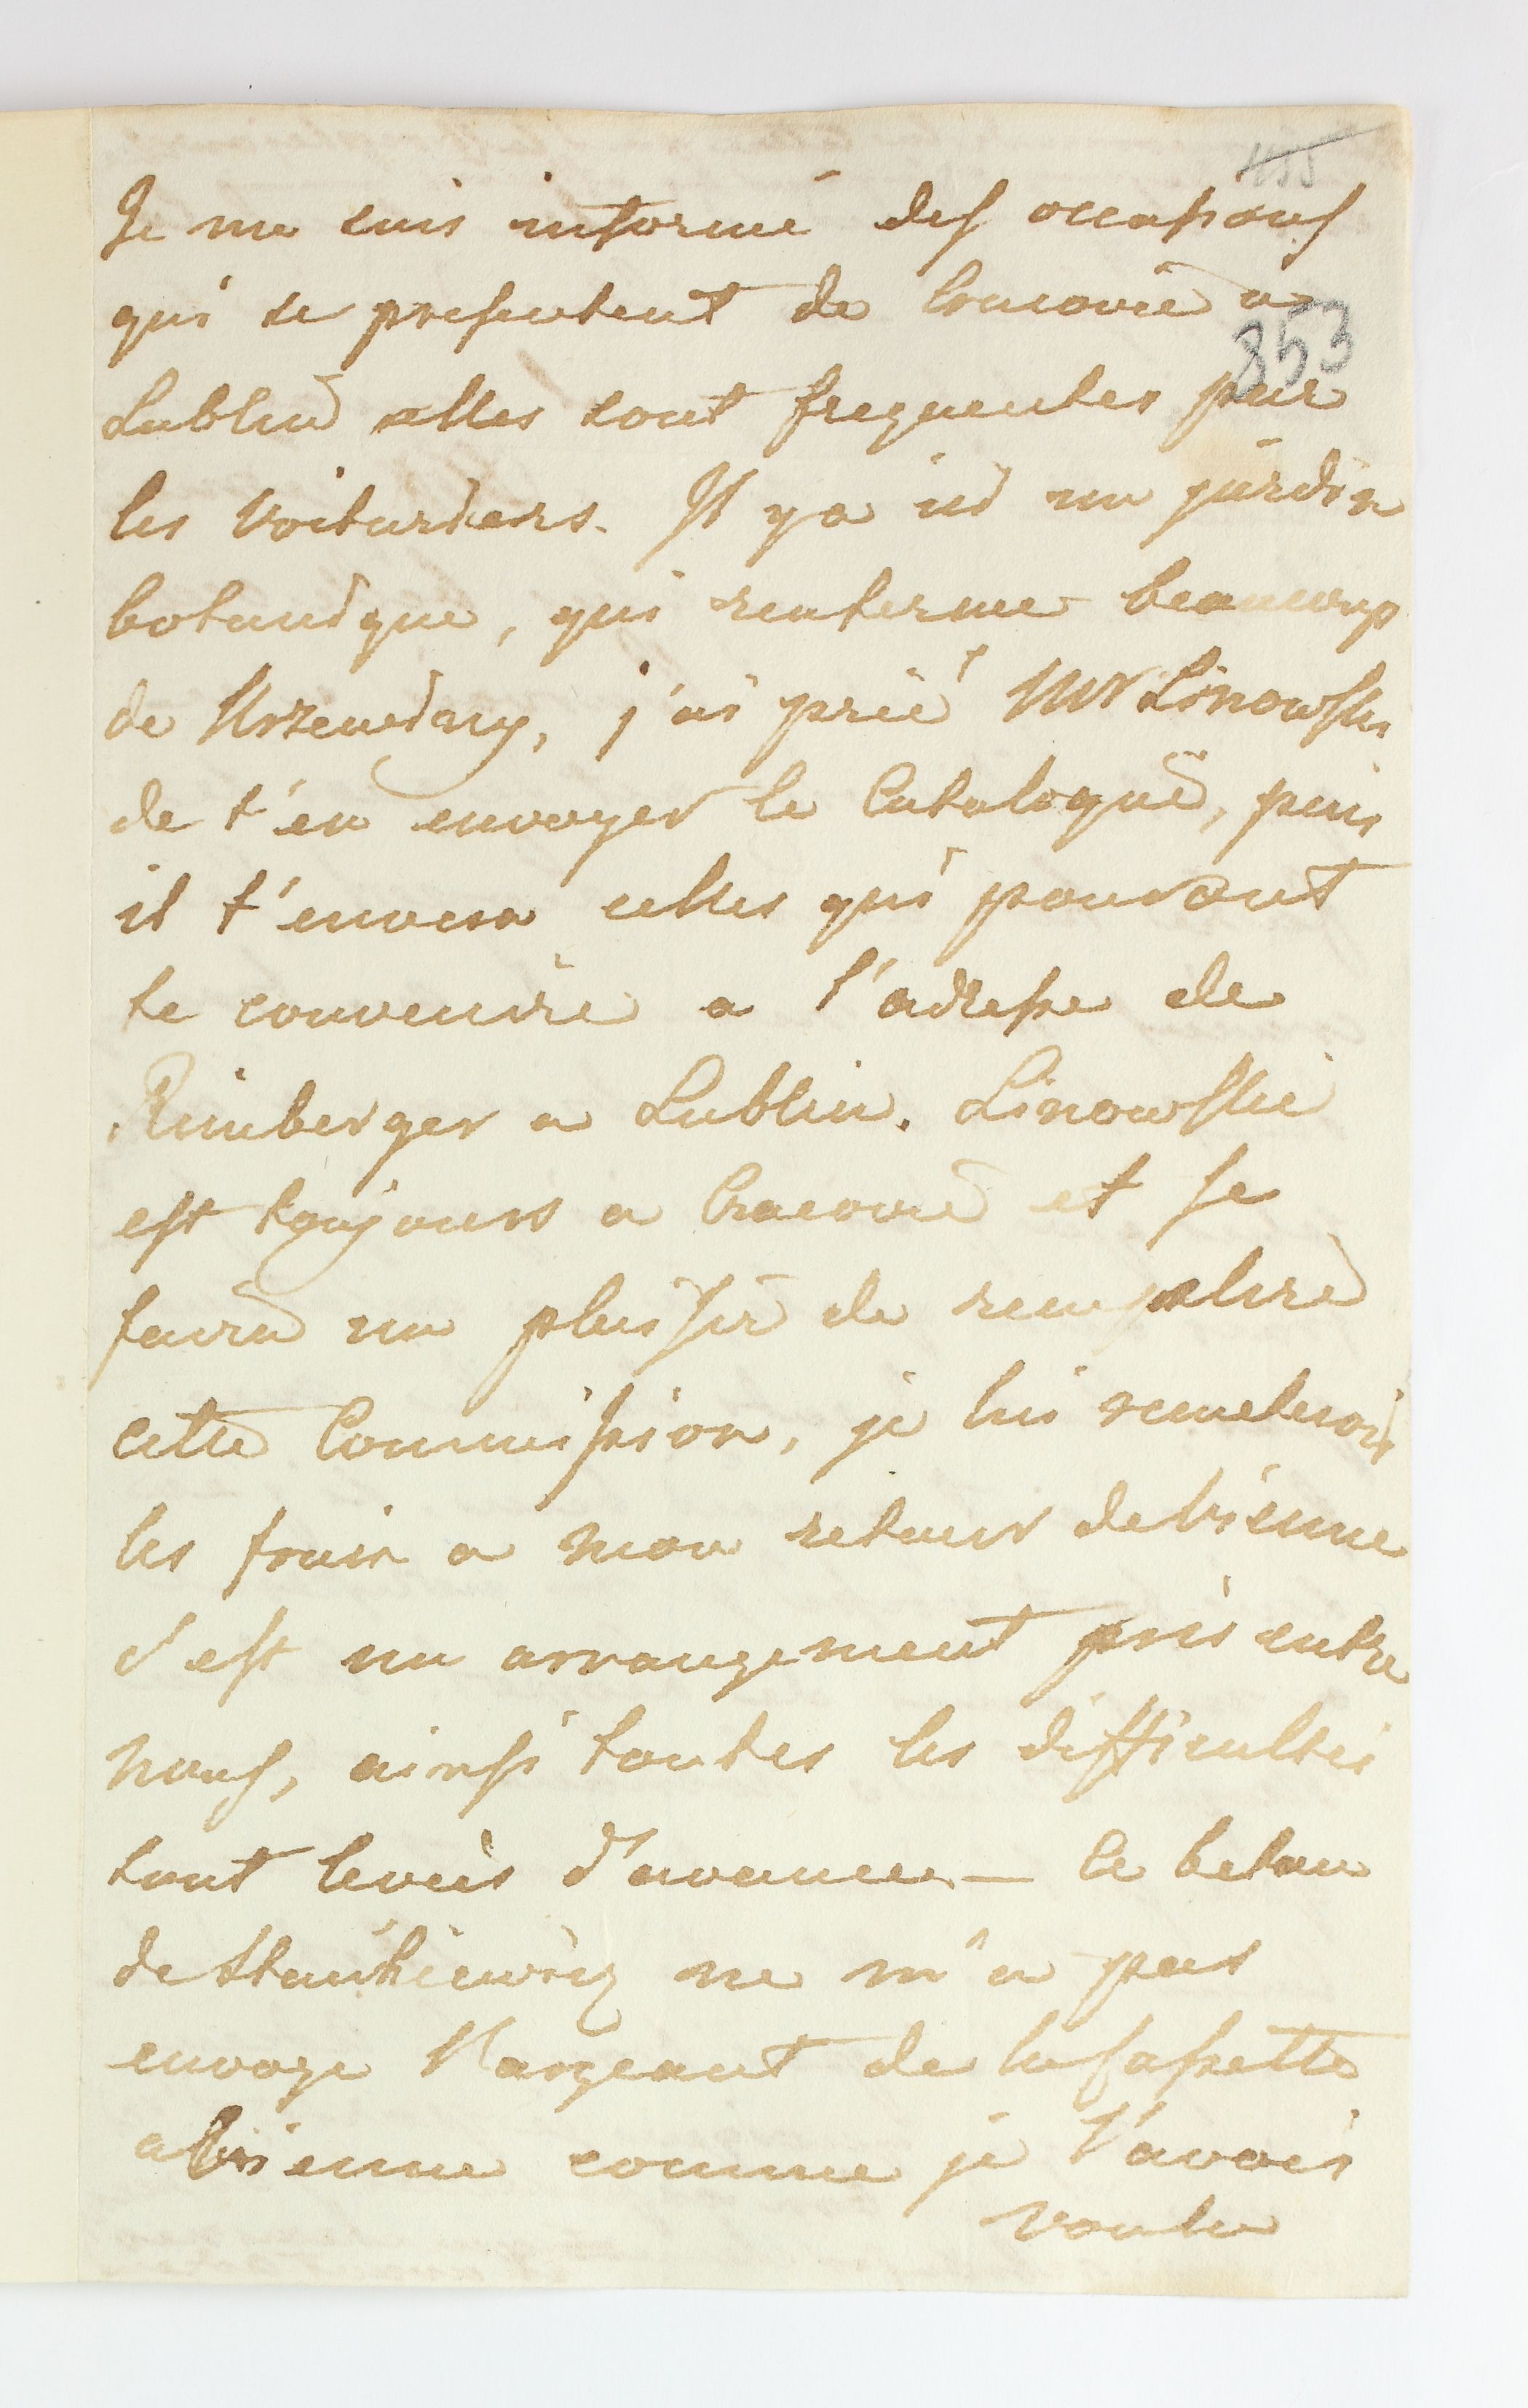 Je me suis informé des occasions
qui se presentent de Cracovie a
853
Lublin elles sont frequentes par
les Voituriers. Il y a ici un jardin
botanique, qui renferme beaucoup
de Krzewiny, j'ai prié Mr Linowski
de t'en envoyer le Catalogue, puis
il t'envera celles qui pouront
te convenire a l'adresse de
Rimberger a Lublin. Linowski
est toujours a Cracovie et se
faira un plaisir de remplire
cette Commission, je lui remeterois
les frais a mon retour de Vienne
c'est un arrangement pris entre
nous, ainsi toutes les difficultés
sont levéis d'avance. — Ce
de Stankiewicz ne m'a pas
envoye l'argeant de la Cassette
a Vienne comme je l'avois
voulu